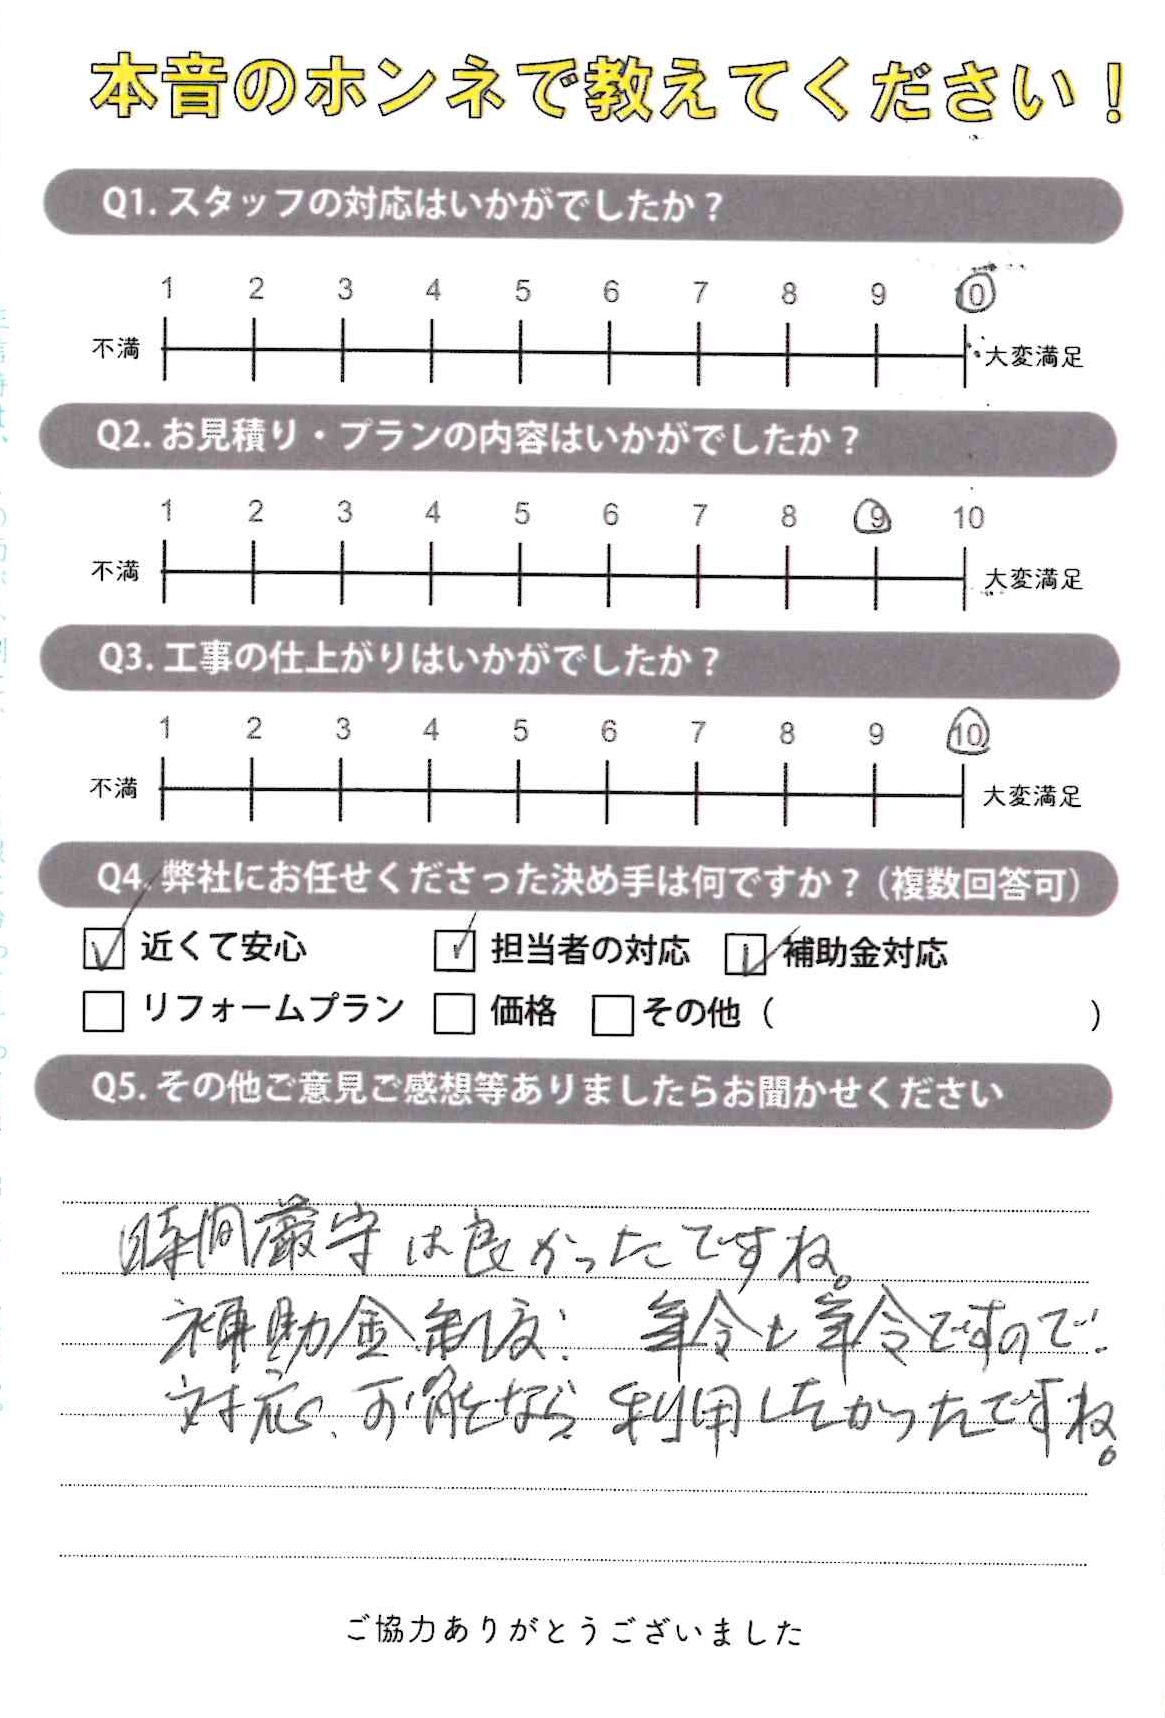 本音のホンネで教えてください！
Q1. スタッフの対応はいかがでしたか？
1 2 3 4 5 6 7 8 9 10
不満 大変満足
Q2. お見積り・プランの内容はいかがでしたか？
1 2 3 4 5 6 7 8 9 10
不満 大変満足
Q3. 工事の仕上がりはいかがでしたか？
1 2 3 4 5 6 7 8 9 10
不満 大変満足
Q4. 弊社にお任せくださった決め手は何ですか？（複数回答可）
☑ 近くて安心 ☑ 担当者の対応 ☑ 補助金対応
□ リフォームプラン □ 価格 □ その他（ ）
Q5. その他ご意見ご感想等ありましたらお聞かせください
時間厳守は良かったですね。
補助金制度: 年令も年令ですので:
対応、可能なら 利用したかったですね。
ご協力ありがとうございました